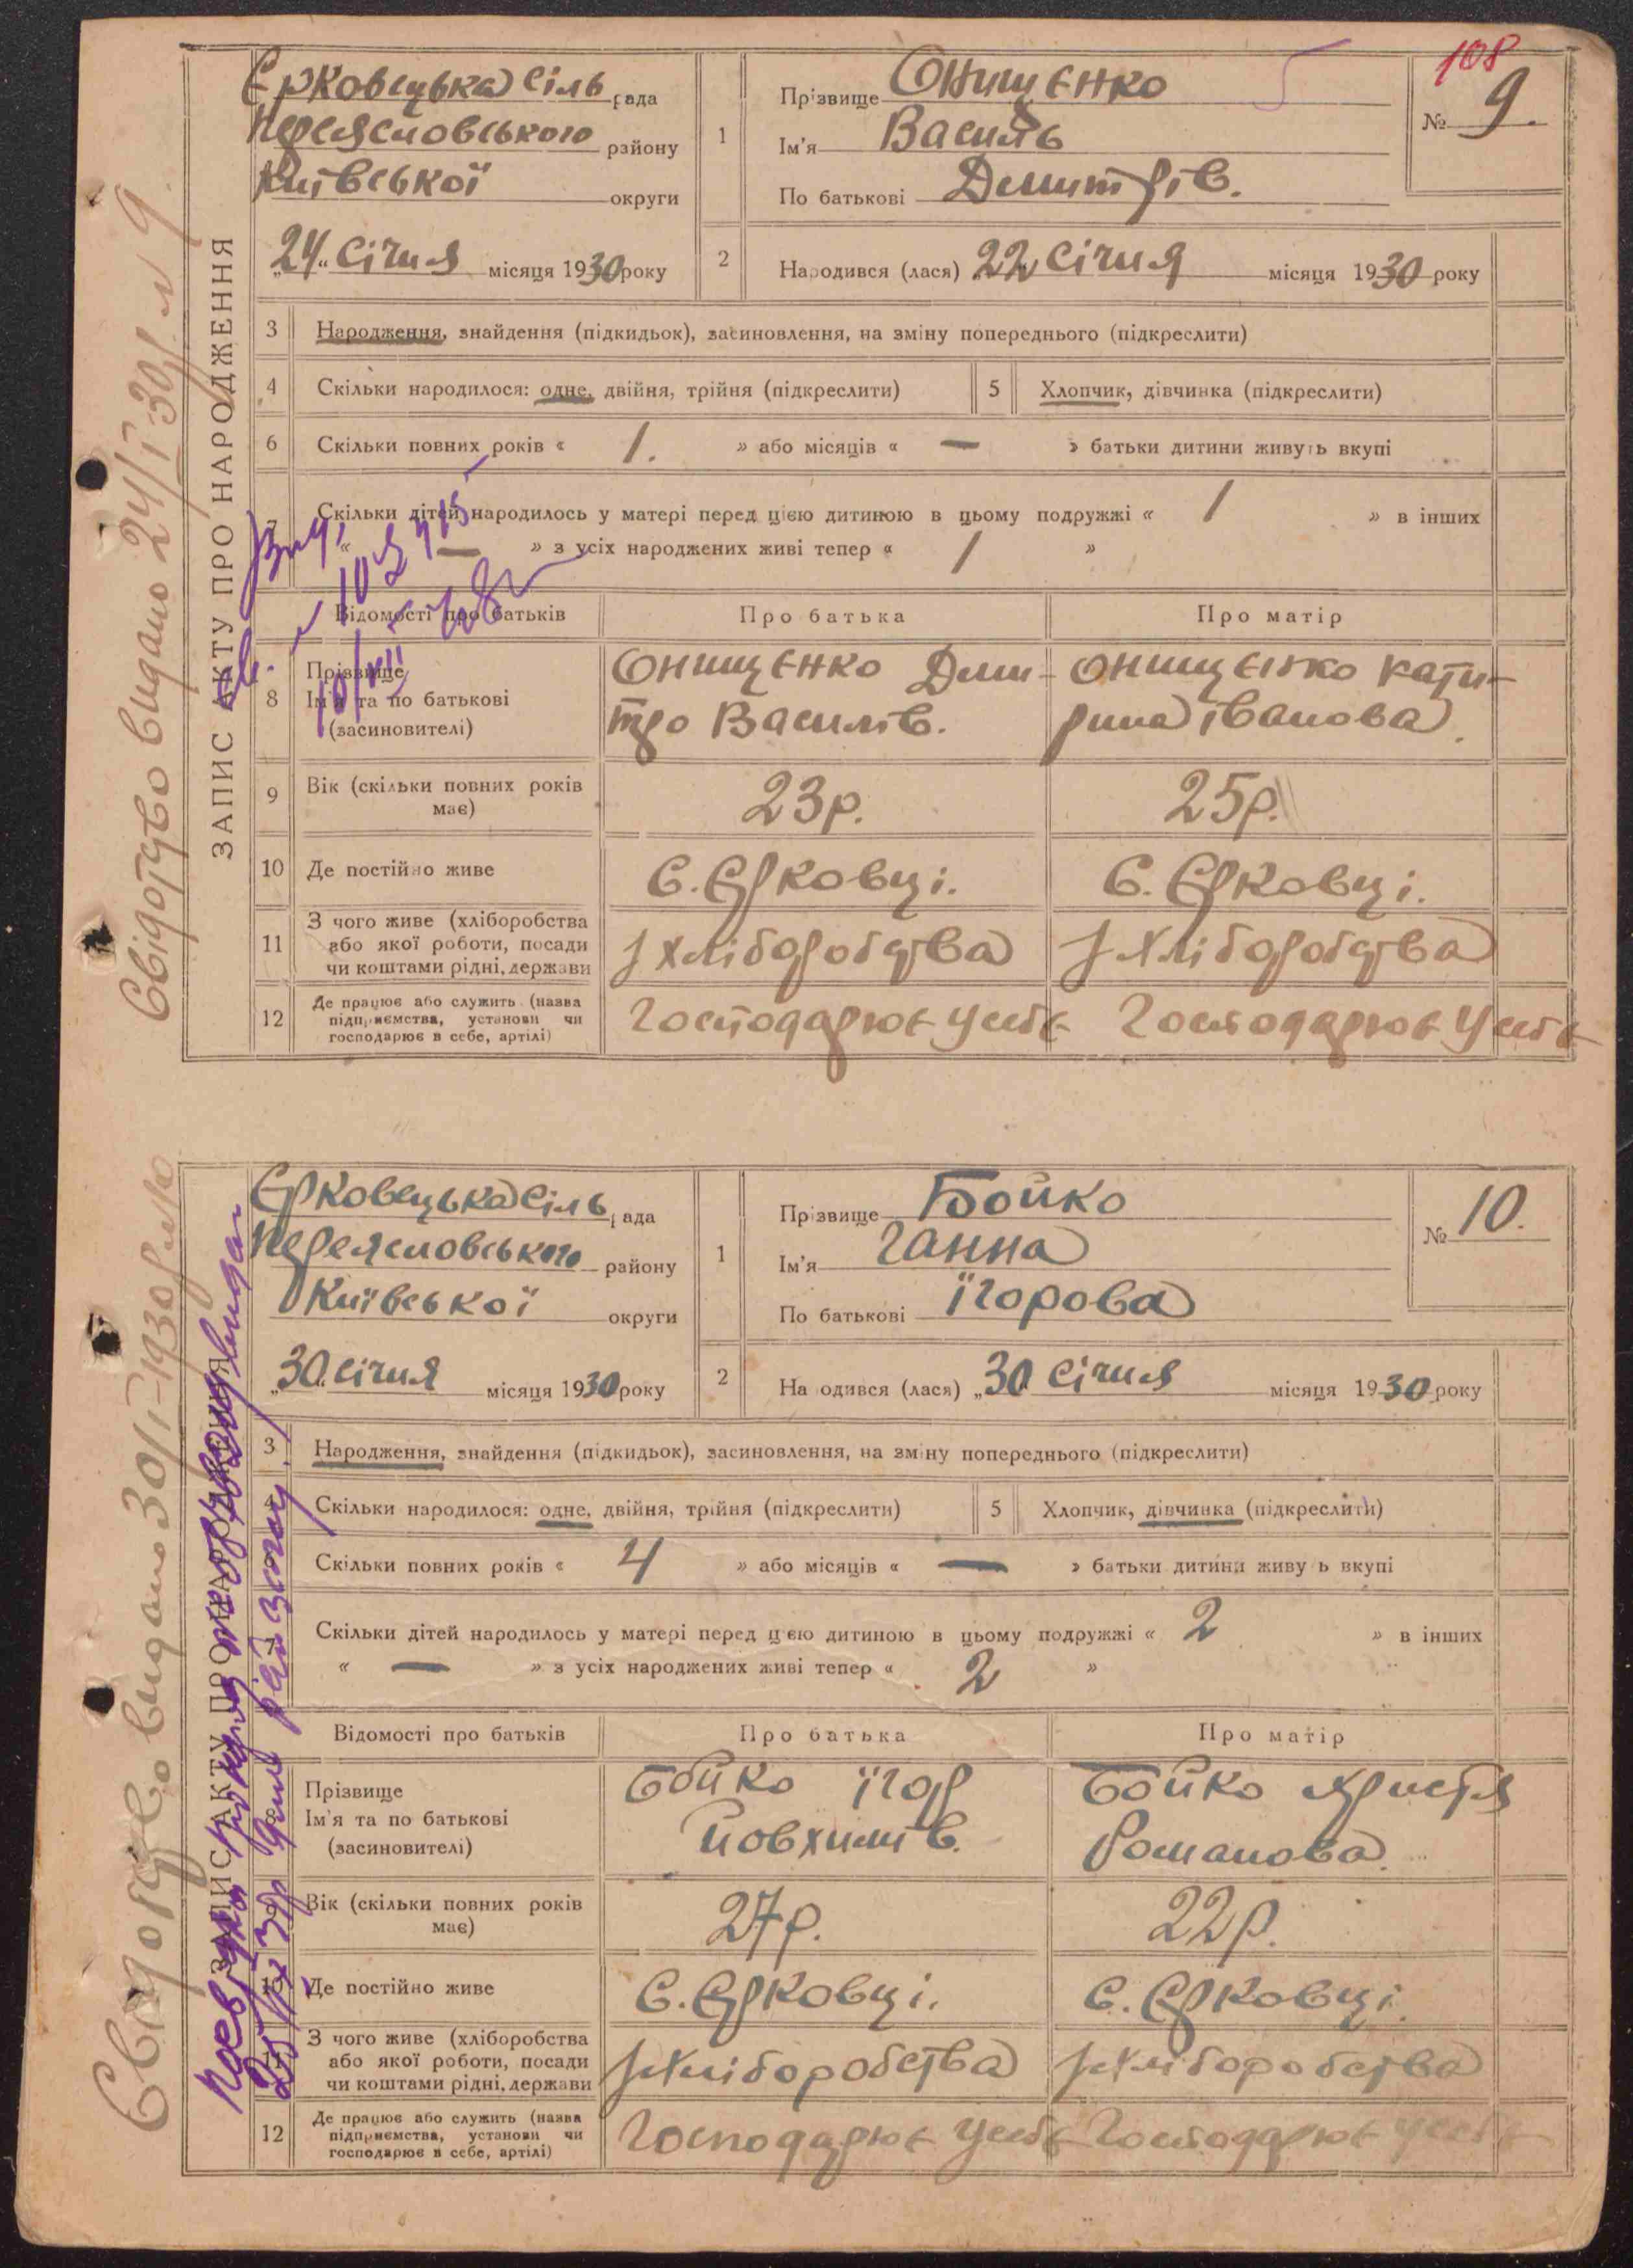 108
Єрковецька Сіль рада
Переясловського району
Київської округи
„24“ Січня місяця 1930 року
1
Прізвище Онищенко
Ім'я Василь
По батькові Демитрів.
№ 9.
2
Народився (лася) 22 Січня місяця 1930 року
ЗАПИС АКТУ ПРО НАРОДЖЕННЯ
Свідотство видано 24/I 30р. № 9.
3 Народження, знайдення (підкидьок), засиновлення, на зміну попереднього (підкреслити)
4 Скільки народилося: одне, двійня, трійня (підкреслити) 5 Хлопчик, дівчинка (підкреслити)
6 Скільки повних років « 1. » або місяців « — » батьки дитини живуть вкупі
7 Скільки дітей народилось у матері перед цією дитиною в цьому подружжі « 1 » в інших
« — » з усіх народжених живі тепер « 1 »
Відомості про батьків Про батька Про матір
8
Прізвище
Ім'я та по батькові
(засиновителі)
Онищенко Дми-
тро Василів.
Онищенко Кати-
рина Іванова.
9
Вік (скільки повних років
має)
23р. 25р.
10 Де постійно живе С. Єрковці. С. Єрковці.
11
З чого живе (хліборобства
або якої роботи, посади
чи коштами рідні, держави
З хліборобства З хліборобства
12
Де працює або служить (назва
підприємства, установи чи
господарює в себе, артілі)
Господарює усебе Господарює усебе
Єрковецька Сіль рада
Переясловського району
Київської округи
„30“ січня місяця 1930 року
1
Прізвище Бойко
Ім'я Ганна
По батькові Їгорова
№ 10.
2
Народився (лася) „30“ Січня місяця 1930 року
ЗАПИС АКТУ ПРО НАРОДЖЕННЯ
Свідотство видано 30/I-1930р. №10
3 Народження, знайдення (підкидьок), засиновлення, на зміну попереднього (підкреслити)
4 Скільки народилося: одне, двійня, трійня (підкреслити) 5 Хлопчик, дівчинка (підкреслити)
Скільки повних років « 4 » або місяців « — » батьки дитини живуть вкупі
7 Скільки дітей народилось у матері перед цією дитиною в цьому подружжі « 2 » в інших
« — » з усіх народжених живі тепер « 2 »
Відомості про батьків Про батька Про матір
8
Прізвище
Ім'я та по батькові
(засиновителі)
Бойко Їгор
Йовхимів.
Бойко Христя
Романова.
Вік (скільки повних років
має)
27р. 22р.
10 Де постійно живе С. Єрковці. С. Єрковці.
11
З чого живе (хліборобства
або якої роботи, посади
чи коштами рідні, держави
З хліборобства З хліборобства
12
Де працює або служить (назва
підприємства, установи чи
господарює в себе, артілі)
Господарює усебе Господарює усебе